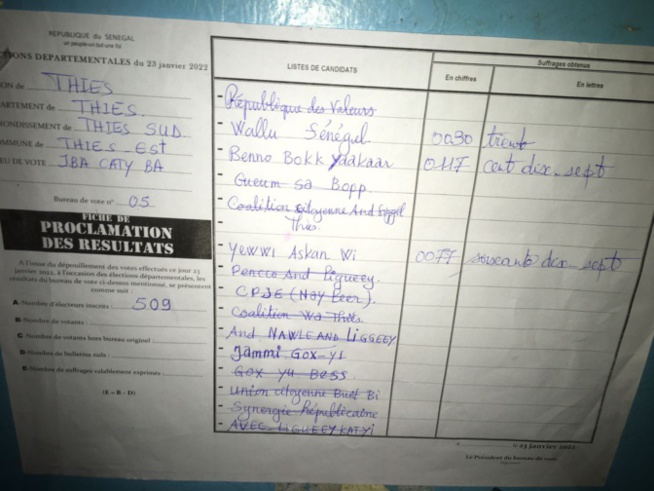 REPUBLIQUE du SENEGAL
un peuple-un but-une foi
IONS DEPARTEMENTALES du 23 janvier 2022
ON de THIES
ARTEMENT de THIES
ONDISSEMENT de THIES SUD
MMUNE de THIES Est
EU DE VOTE JBA CATY BA
Bureau de vote n° 05
FICHE DE
PROCLAMATION
DES RESULTATS
A l'issue du dépouillement des votes effectués ce jour 23
janvier 2022, à l'occasion des élections départementales, les
résultats du bureau de vote ci-dessus mentionné, se présentent
comme suit :
A-Nombre d'électeurs inscrits : 509
B-Nombre de votants :
C-Nombre de votants hors bureau originel :
D-Nombre de bulletins nuls :
E-Nombre de suffrages valablement exprimés :
(E = B - D)
LISTES DE CANDIDATS
Suffrages obtenus
En chiffres
En lettres
- République des Valeurs
- Wallu Sénégal 0030 trente
- Benno Bokk Yaakaar 0117 cent dix-sept
- Gueum sa Bopp
- Coalition citoyenne And
Thies.
- Yewwi Askan Wi 0077 soixante dix-sept
- Pencco And Ligueey
- CPJE (Nay Leer).
- Coalition Wa Thies
- And NAWLE AND LIGGEEY
- Jammi Gox-Yi
- Gox Yu Bess
- Union citoyenne Bunt Bi
- Synergie Républicaine
- AVEC LIGUEEY KAT YI
23 janvier 2022
Le Président du bureau de vote